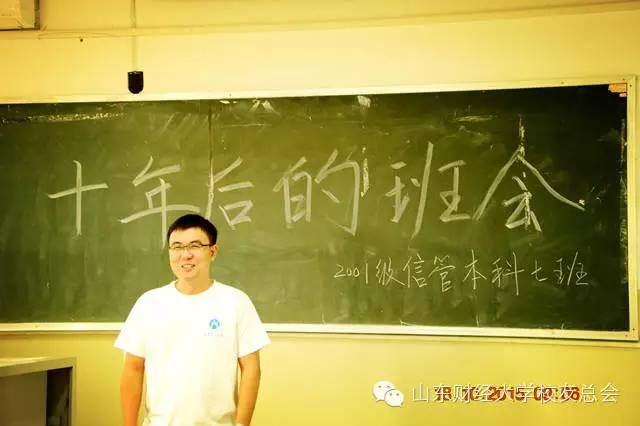 十年后的班会
2001级信管本科七班
山东财经大学校友总会